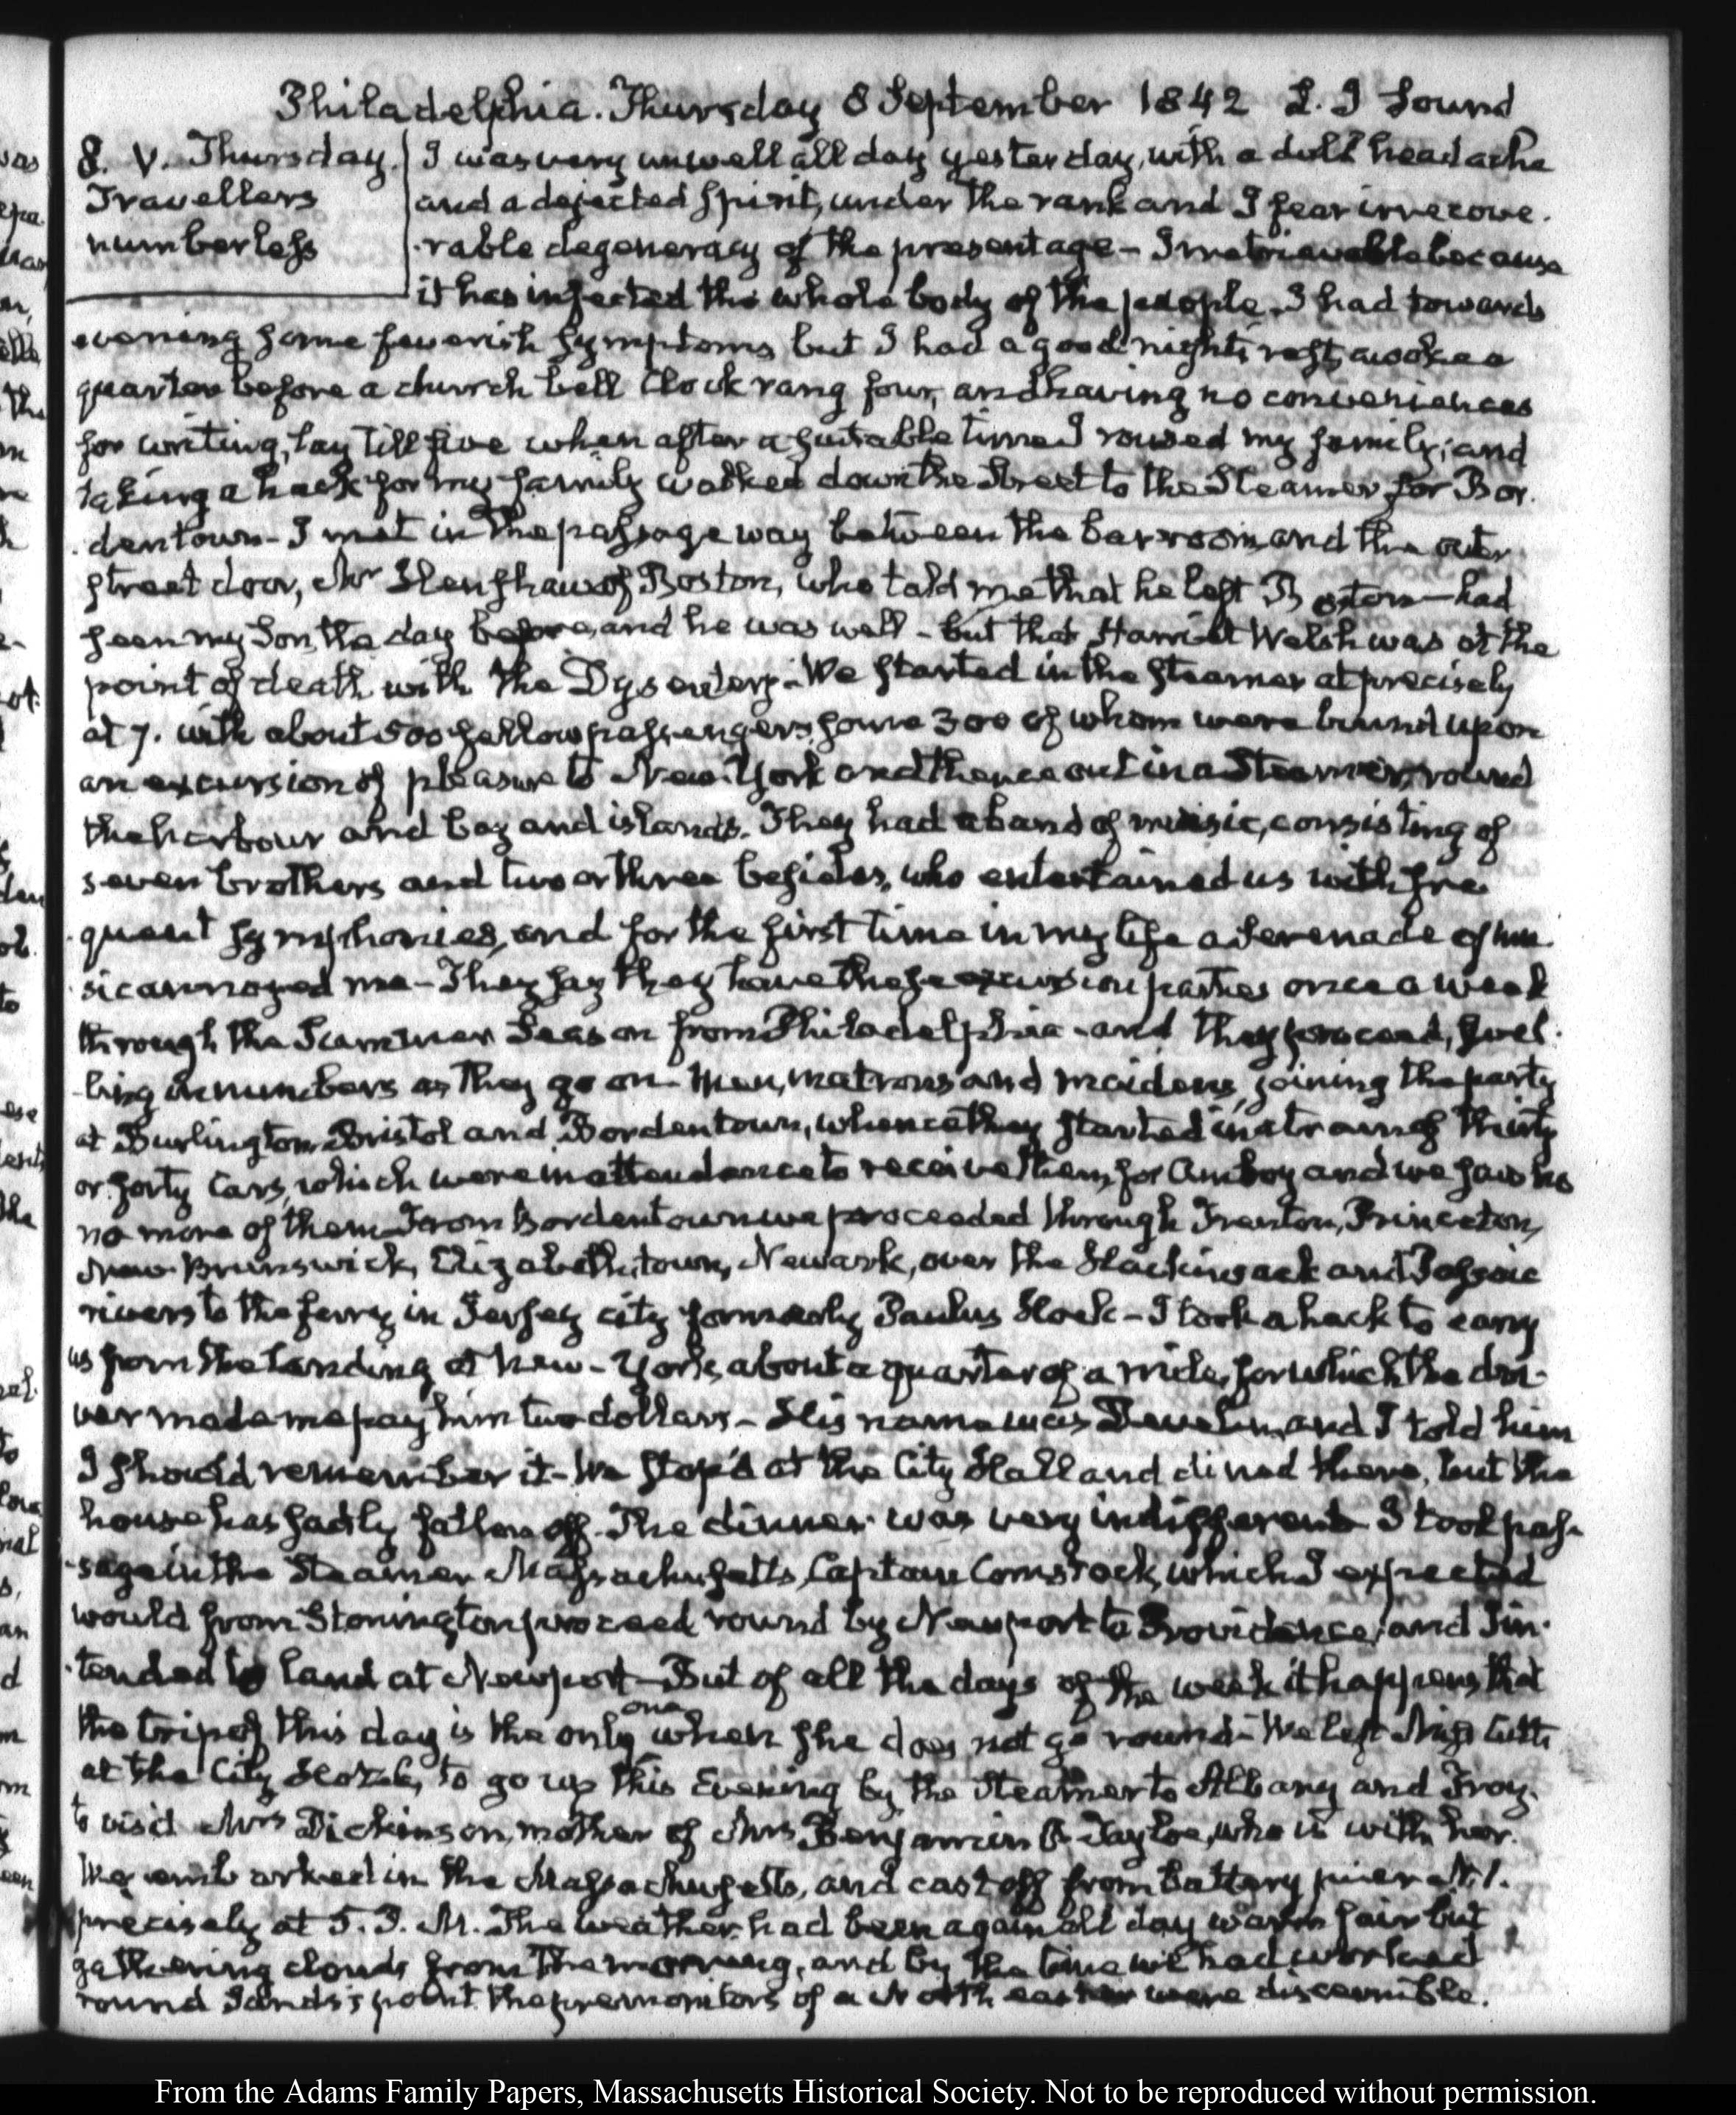 Philadelphia. Thursday 8 September 1842 L. I Sound
8. V. Thursday.
Travellers
numberless
I was very unwell all day yesterday, with a dull head ache
and a dejected Spirit, under the rank and I fear irrecove-
rable degeneracy of the present age - Irretrievable because
it has infected the whole body of the people. I had towards
evening some feverish symptoms but I had a good night's rest, awoke a
quarter before a church bell Clock rang four, and having no conveniences
for writing, lay till five when after a suitable time I roused my family; and
taking a hack for my family walked down the Street to the Steamer for Bor-
dentown - I met in the passage way between the bar room and the outer
street door, Mr Henshaw of Boston, who told me that he left Boston - had
seen my Son the day before, and he was well - but that Harriet Welsh was at the
point of death with the Dysentery - We started in the steamer at precisely
at 7. with about 500 fellow passengers, some 300 of whom were bound upon
an excursion of pleasure to New-York and thence out in a Steamer, round
the harbour and bay and islands. They had a band of music, consisting of
seven brothers and two or three besides, who entertained us with fre-
quent symphonies, and for the first time in my life a Serenade of mu-
sic annoyed me - They say they have these excursion parties once a week
through the Summer Season from Philadelphia - and they proceed, swel-
ling in numbers as they go on - Men, matrons and maidens, joining the party
at Burlington Bristol and Bordentown, whence they started in a train of thirty
or forty Cars, which were in attendance to receive them, for Amboy and we saw
no more of them - From Bordentown we proceeded through Trenton, Princeton,
New-Brunswick, Elizabeth-town, Newark, over the Hackinsack and Passaic
rivers to the ferry in Jersey city formerly Paulus Hook - I took a hack to carry
us from the landing at New-York, about a quarter of a mile, for which the dri-
ver made me pay him two dollars - His name was and I told him
I should remember it - We stop'd at the City Hall and dined there, but the
house has sadly fallen off - The dinner was very indifferent I took pas-
sage in the Steamer Massachusetts, Captain Comstock, which I expected
would from Stonington proceed round by Newport to Providence; and I in-
tended to land at Newport - But of all the days of the week it happens that
the trip of this day is the only one when she does not go round - We left Miss Cutts
at the City Hotel, to go up this Evening by the Steamer to Albany and Troy.
to visit Mrs Dickinson, mother of Mrs Benjamin O. Tayloe, who is with her.
We embarked in the Massachusetts, and cast off from battery pier N. 1.
precisely at 5. P. M. The weather had been again all day warm fair but
gathering clouds from the morning, and by the time we had worked
round Sands's point the premonitors of a North easter were discernible.
From the Adams Family Papers, Massachusetts Historical Society. Not to be reproduced without permission.